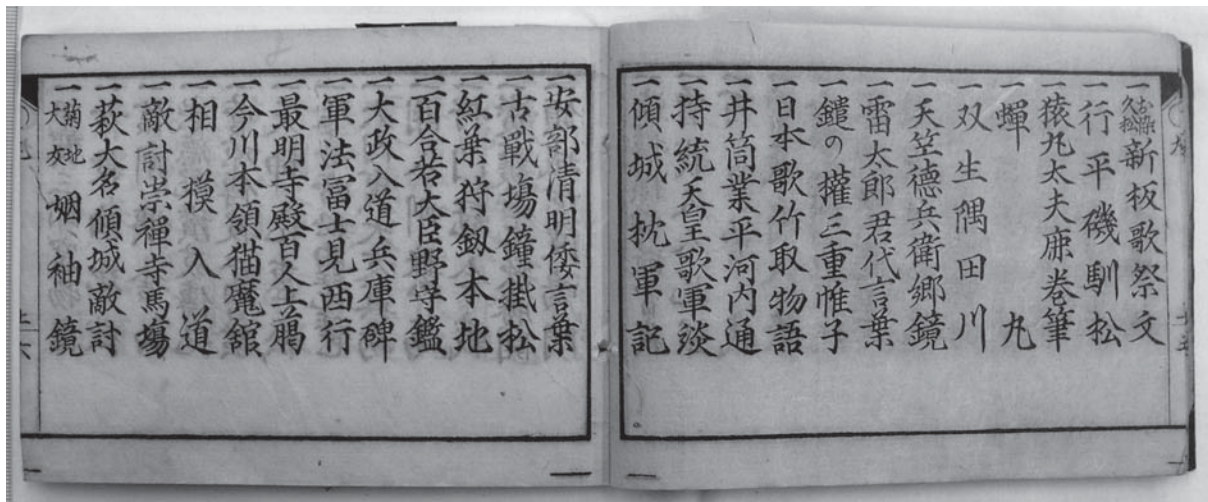 一 お染久松 新板歌祭文
一 行平磯馴松
一 猿丸太夫鹿巻筆
一 蟬丸
一 双生隅田川
一 天竺德兵衛郷鏡
一 雷太郎君代言葉
一 鑓の權三重帷子
一 日本歌竹取物語
一 井筒業平河内通
一 持統天皇歌軍談
一 傾城枕軍記
一 安部清明倭言葉
一 古戰場鐘掛松
一 紅葉狩釼本地
一 百合若大臣野守鑑
一 大政入道兵庫碑
一 軍法冨士見西行
一 最明寺殿百人上﨟
一 今川本領猫魔舘
一 相摸入道
一 敵討崇禪寺馬場
一 萩大名傾城敵討
一 菊地大友 姻袖鏡